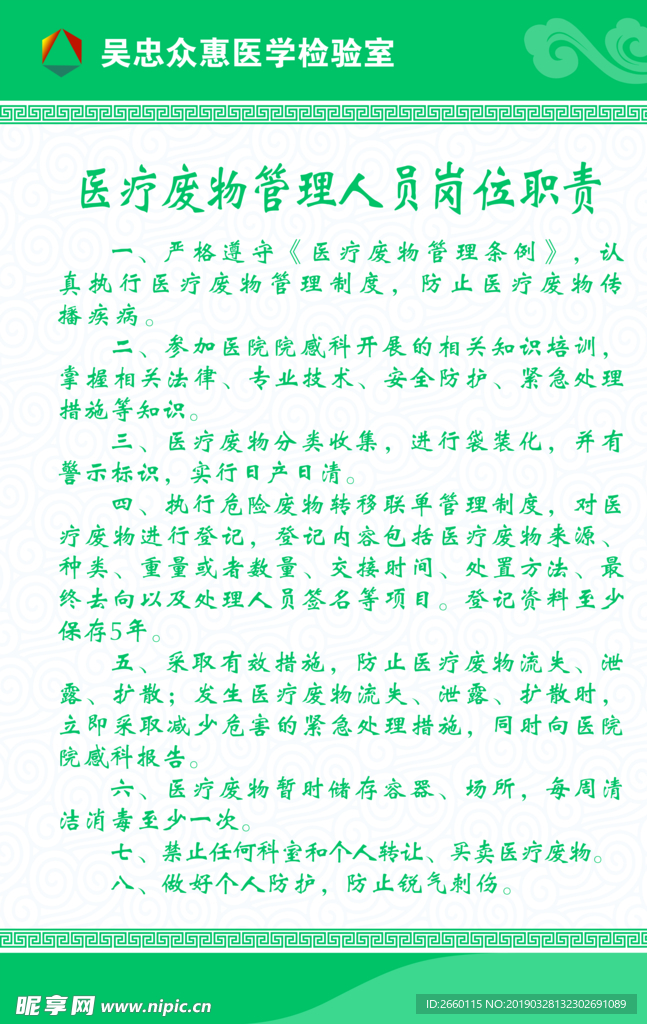 吴忠众惠医学检验室
医疗废物管理人员岗位职责
一、严格遵守《医疗废物管理条例》，认
真执行医疗废物管理制度，防止医疗废物传
播疾病。
二、参加医院院感科开展的相关知识培训，
掌握相关法律、专业技术、安全防护、紧急处理
措施等知识。
三、医疗废物分类收集，进行袋装化，并有
警示标识，实行日产日清。
四、执行危险废物转移联单管理制度，对医
疗废物进行登记，登记内容包括医疗废物来源、
种类、重量或者数量、交接时间、处置方法、最
终去向以及处理人员签名等项目。登记资料至少
保存5年。
五、采取有效措施，防止医疗废物流失、泄
露、扩散；发生医疗废物流失、泄露、扩散时，
立即采取减少危害的紧急处理措施，同时向医院
院感科报告。
六、医疗废物暂时储存容器、场所，每周清
洁消毒至少一次。
七、禁止任何科室和个人转让、买卖医疗废物。
八、做好个人防护，防止锐气刺伤。
昵享网 www.nipic.cn
ID:2660115 NO:20190328132302691089